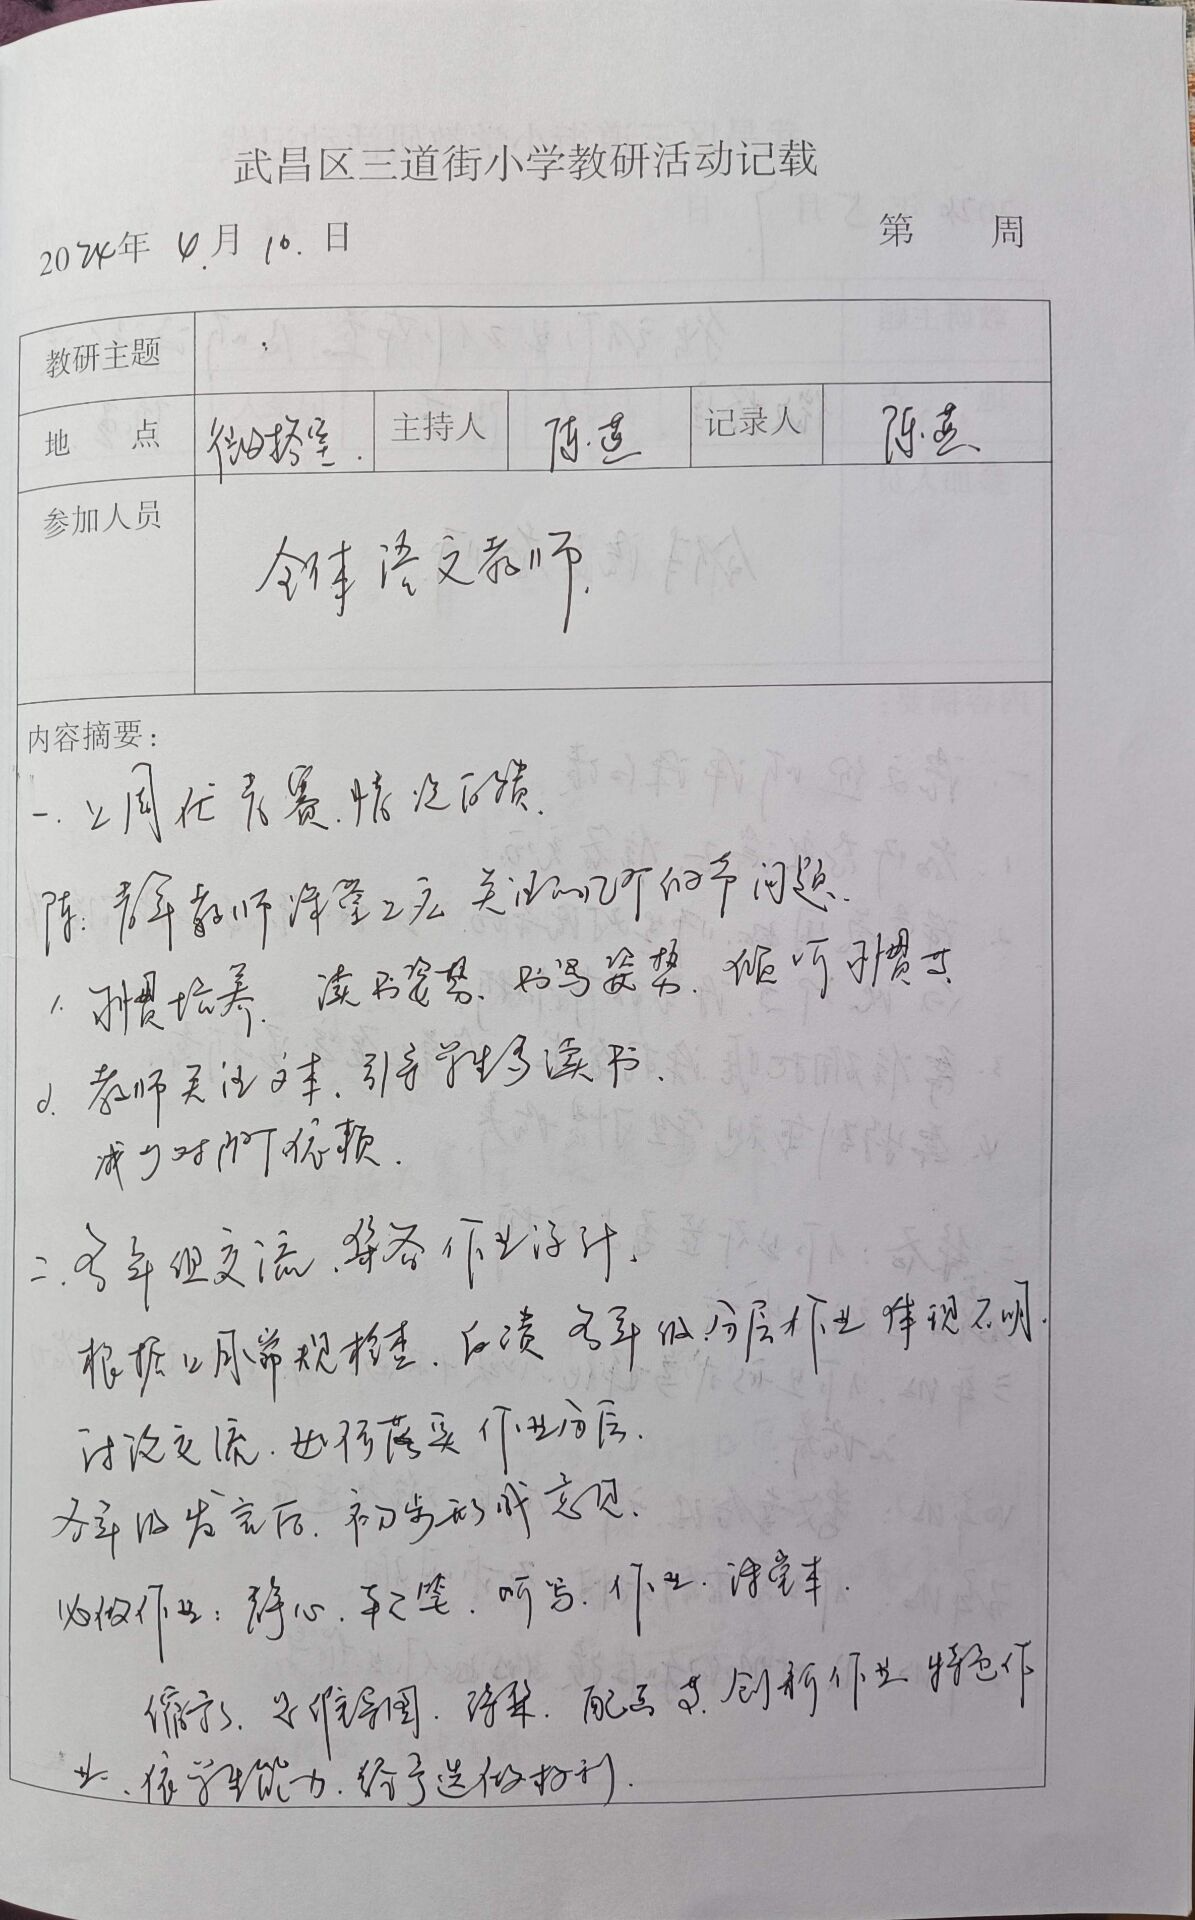 武昌区三道街小学教研活动记载
2024年 4.月 10.日 第 周
教研主题
地 点 微格室. 主持人 陈燕 记录人 陈燕
参加人员 全体语文教师.
内容摘要：
一.上周优青赛.情况反馈.
陈：青年教师课堂上应关注的几个细节问题.
1. 习惯培养.读书姿势、书写姿势.倾听习惯等
2. 教师关注文本.引导学生多读书.
减少对PPT依赖.
二.各年组交流.集备作业设计.
根据上月常规检查.反馈各年级.分层作业体现不明.
讨论交流.如何落实作业分层.
各年级发言后.初步形成意见.
必做作业：静心.随笔.听写.作业.课堂本.
缩写.思维导图.诗集.配画等.创新作业特色作
业.依学生能力.给予选做权利.